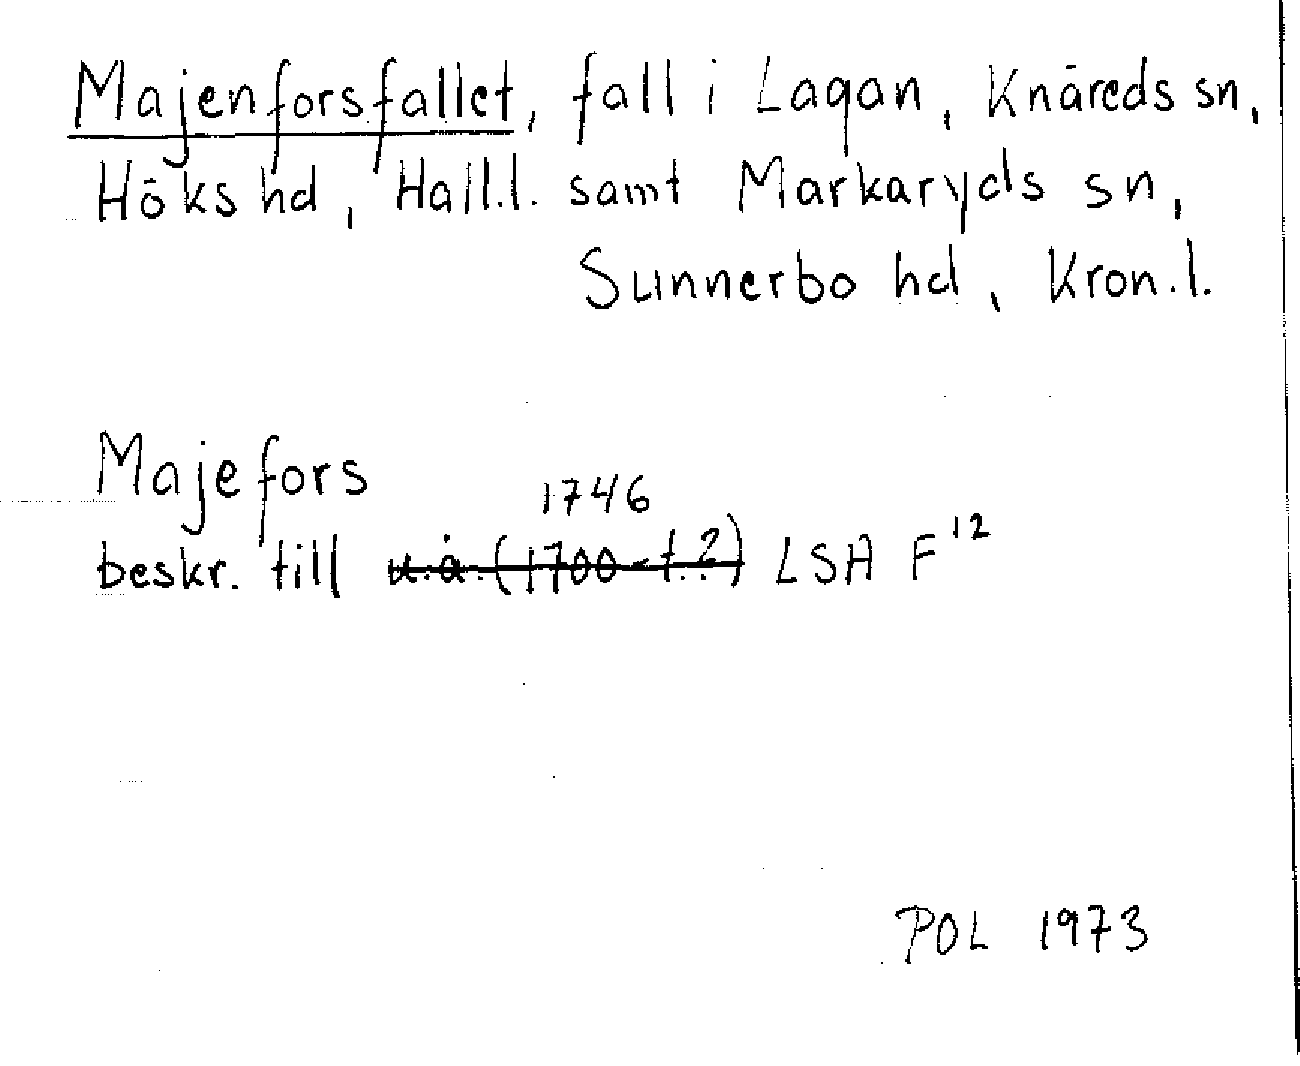 Majenforsfallet, fall i Lagan, Knäreds sn,
Höks hd, Hall.l. samt Markaryds sn,
Sunnerbo hd, Kron.l.
Majefors
1746
beskr. till u.å. (1700-t.?) LSA F12
POL 1973